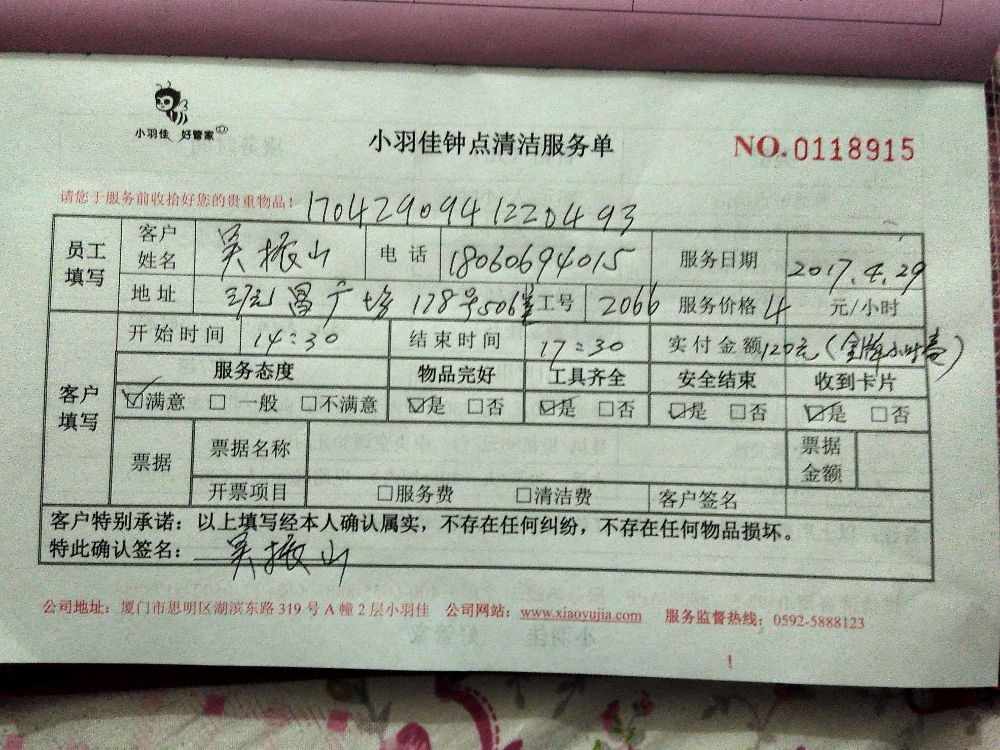 小羽佳 好管家
小羽佳钟点清洁服务单
NO.0118915
请您于服务前收拾好您的贵重物品！ 1704290941220493
员工填写 客户姓名 吴振山 电话 18060694015 服务日期 2017.4.29
地址 昌广场 128号506室 工号 2066 服务价格 4 元/小时
客户填写 开始时间 14:30 结束时间 17:30 实付金额 120元（金牌小时
服务态度 物品完好 工具齐全 安全结束 收到卡片
☑满意 □一般 □不满意 ☑是 □否 ☑是 □否 ☑是 □否 ☑是 □否
票据 票据名称 票据金额
开票项目 □服务费 □清洁费 客户签名
客户特别承诺：以上填写经本人确认属实，不存在任何纠纷，不存在任何物品损坏。
特此确认签名： 吴振山
公司地址：厦门市思明区湖滨东路 319 号 A 幢 2 层小羽佳 公司网站：www.xiaoyujia.com 服务监督热线：0592-5888123